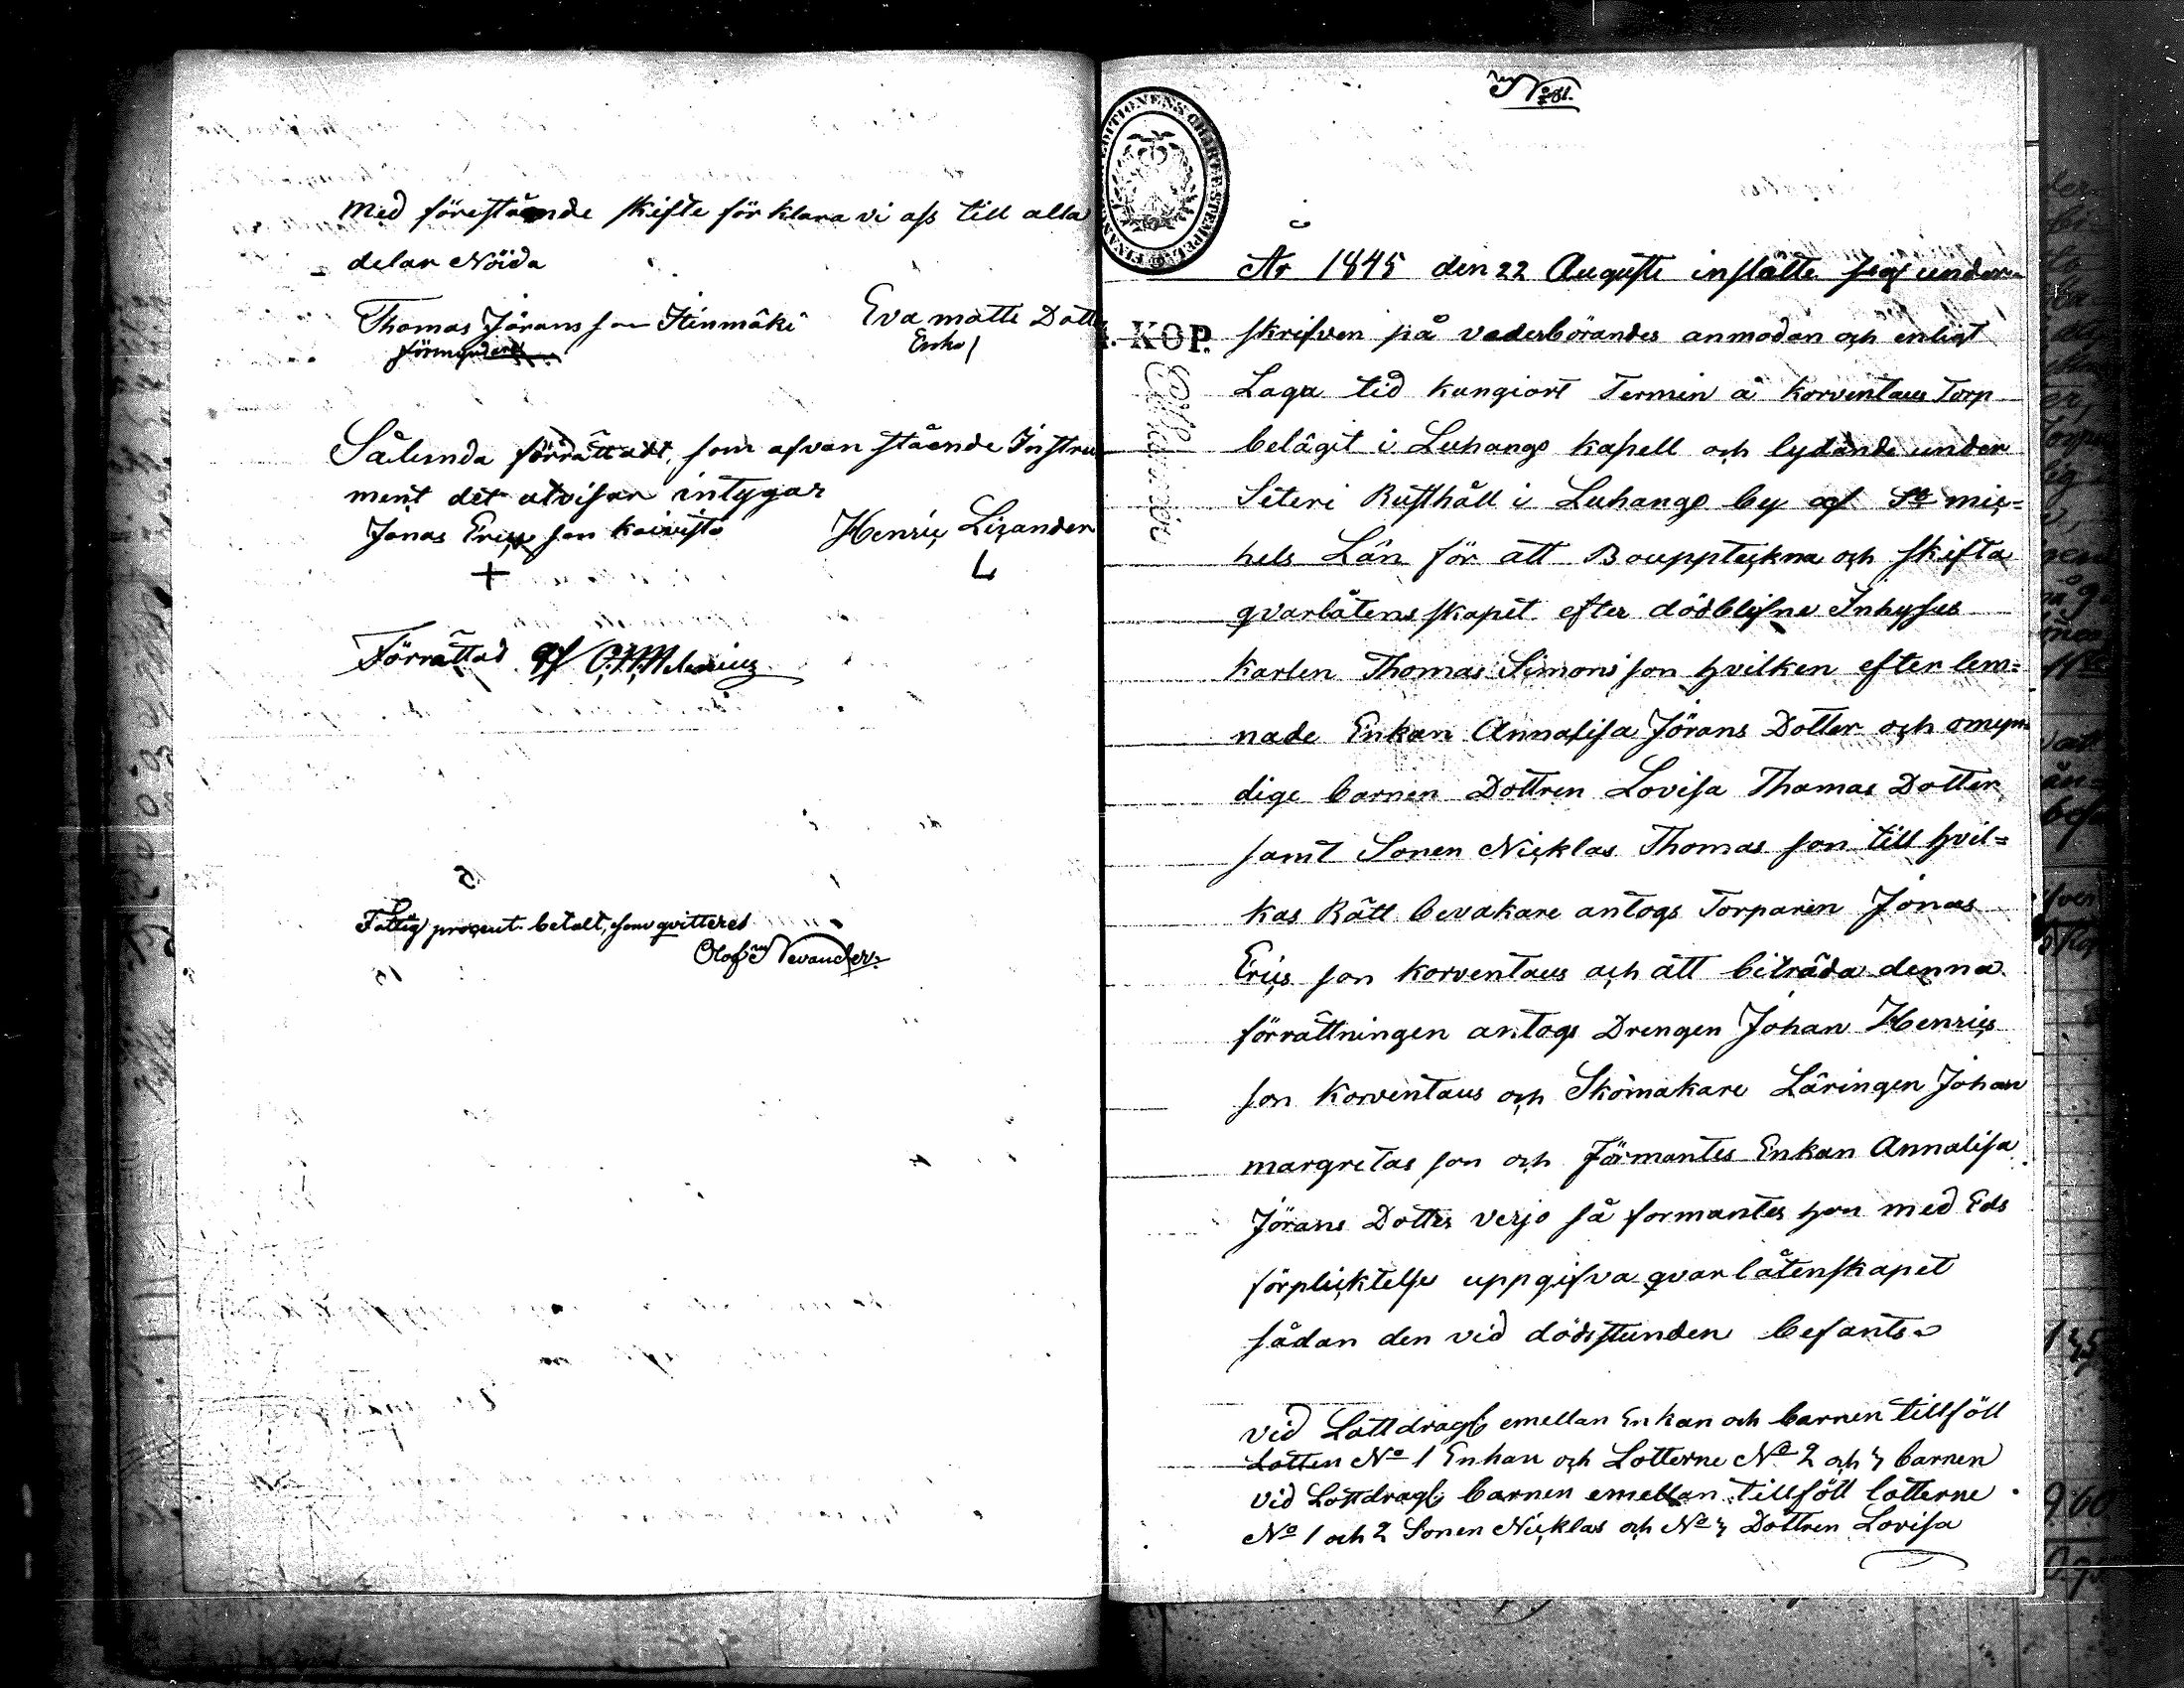 med föreståande skifte för klara vi oss till alla
delar Nöida
Thomas Jörans son Itinmäki Eva matts Dott
förmyndere Enka
Sålunda förrättadt, som ofvan stående Instru
ment det utvisar intygar
Jonas Erics son koivisto Henric Lizander
+ L
Förrättad af
Fattig procent betalt, som qvitteres
Olof Nevander.
No
FINANS EXPEDITIONENS CHARTÆ STEMPEL
År 1845 den 22 Augusti instälte jag under
KOP. skrifven på vederbörandes anmodan och enligt
Laga tid kungiort Termin å korventaus Torp
belägit i Luhango kapell och lydande under
Säteri Rusthåll i Luhango by af St mic=
hels Län för att Bouppteckna och skifta
qvarlåtens skapet efter dödblifne Inhyses
karlen Thomas Simons son hvilken efter lem=
nade Enkan Annalisa Jörans Dotter och omyn
dige barnen Dottren Lovisa Thomas Dotter
samt Sonen Nicklas Thomas son till hvil=
kas Rätt bevakare antogs Torparen Jonas
Erics son korventaus och att biträda denna
förrättningen antogs Drengen Johan Henrics
son Korventaus och Skomakare Läringen Johan
margretas son och Förmantes Enkan Annalisa
Jörans Dotter verjo så formantes hon med Eds
förplicktelse uppgifva qvarlåtenskapet
sådan den vid dödsstunden befants
vid Lottdragg emellan Enkan och barnen tillföll
Lotten No 1 Enkan och Lotterne No 2 och 3 barnen
vid Lottdragg barnen emellan tillföll lotterne
No 1 och 2 Sonen Nicklas och No 3 Dottren Lovisa